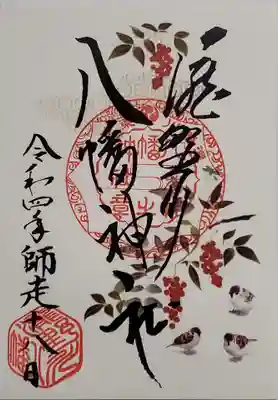 滝野川
八幡神社
令和四年師走十八日